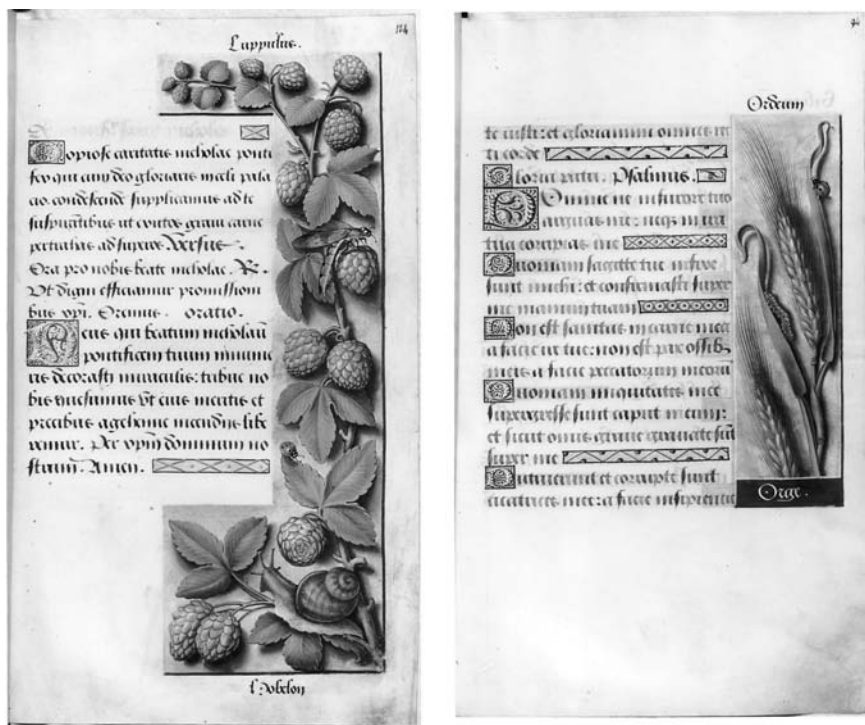 184
Luppulus.
Copiose caritatis nicholae ponti
fex qui cum deo gloriaris in celi pala
cio. condescende supplicamus ad te
suspirantibus ut
ad superos Versus
Ora pro nobis beate nicholae. R.
Vt digni efficiamur promissioni
bus xpi. Oremus. oratio.
Deus qui beatum nicholaū
pontificem tuum innume
ris decorasti miraculis: tribue no
bis quesumus vt eius meritis et
precibus a gehenne incendijs libe
remur. Per xpm dominum no
strum. Amen.
l'Hobelon
Ordeum
te iusti: et gloriamini omnes re
ti corde
Gloria patri. Psalmus.
Domine ne in furore tuo
arguas me: neqz in ira
tua corripias me
Quoniam sagitte tue infixe
sunt michi: et confirmasti super
me manum tuam
Non est sanitas in carne mea
a facie ire tue: non est pax ossib
meis a facie peccatorum meorū
Quoniam iniquitates mee
supergresse sunt caput meum:
et sicut onus graue grauate sūt
super me
Putruerunt et corrupte sunt
cicatrices mee: a facie insipientie
Orge.